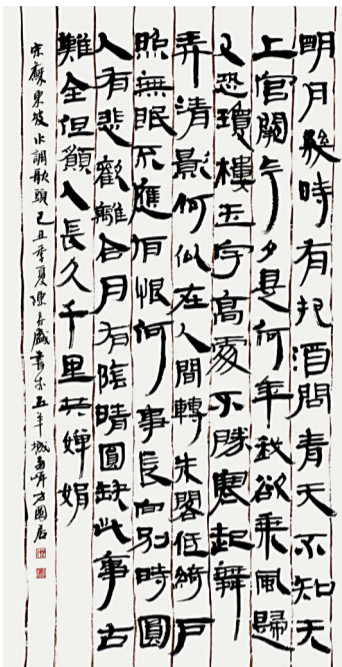 明月幾時有把酒問青天不知天
上宮闕今夕是何年我欲乘風歸
又恐瓊樓玉宇高處不勝寒起舞
弄清影何似在人間轉朱閣低綺戶
照無眠不應有恨何事長向別時圓
人有悲歡離合月有陰晴圓缺此事古
難全但願人長久千里共嬋娟
宋蘇東坡水調歌頭己丑季夏陳盛書於五羊城南岸方圓居